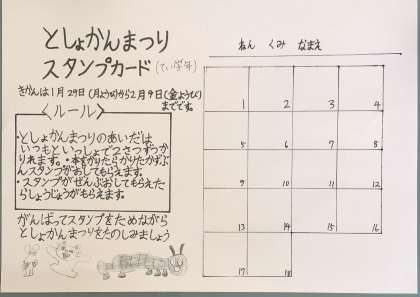 としょかんまつり
スタンプカード (てい学年)
きかんは1月29日(月ようび)から2月9日(金ようび)
までです。
〈ルール〉
・としょかんまつりのあいだは
いつもといっしょで2さつずつか
りれます。・本をかりたらかりたかずぶ
んスタンプがおしてもらえます。
・スタンプがぜんぶおしてもらえた
らしょうじょうがもらえます。
がんばってスタンプをためながら
としょかんまつりをたのしみましょう
ねん くみ なまえ
1 2 3 4
5 6 7 8
9 10 11 12
13 14 15 16
17 18